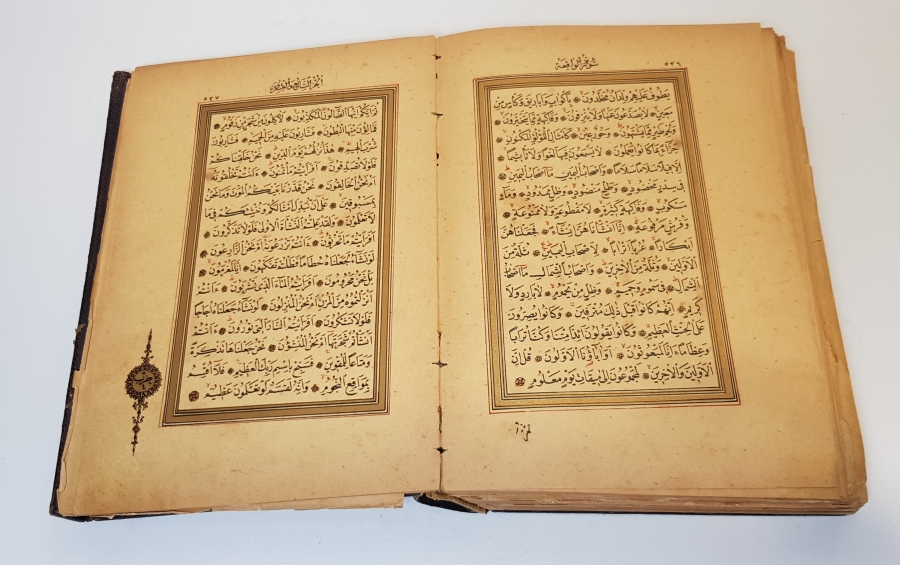 ٥٣٦
سورة الواقعة
يَطُوفُ عَلَيْهِمْ وِلْدَانٌ مُخَلَّدُونَ ۝ بِأَكْوَابٍ وَأَبَارِيقَ وَكَأْسٍ مِنْ
مَعِينٍ ۝ لَا يُصَدَّعُونَ عَنْهَا وَلَا يُنْزِفُونَ ۝ وَفَاكِهَةٍ مِمَّا يَتَخَيَّرُونَ ۝
وَلَحْمِ طَيْرٍ مِمَّا يَشْتَهُونَ ۝ وَحُورٌ عِينٌ ۝ كَأَمْثَالِ اللُّؤْلُؤِ الْمَكْنُونِ ۝
جَزَاءً بِمَا كَانُوا يَعْمَلُونَ ۝ لَا يَسْمَعُونَ فِيهَا لَغْوًا وَلَا تَأْثِيمًا ۝
إِلَّا قِيلًا سَلَامًا سَلَامًا ۝ وَأَصْحَابُ الْيَمِينِ مَا أَصْحَابُ الْيَمِينِ ۝
فِي سِدْرٍ مَخْضُودٍ ۝ وَطَلْحٍ مَنْضُودٍ ۝ وَظِلٍّ مَمْدُودٍ ۝ وَمَاءٍ
مَسْكُوبٍ ۝ وَفَاكِهَةٍ كَثِيرَةٍ ۝ لَا مَقْطُوعَةٍ وَلَا مَمْنُوعَةٍ ۝
وَفُرُشٍ مَرْفُوعَةٍ ۝ إِنَّا أَنْشَأْنَاهُنَّ إِنْشَاءً ۝ فَجَعَلْنَاهُنَّ
أَبْكَارًا ۝ عُرُبًا أَتْرَابًا ۝ لِأَصْحَابِ الْيَمِينِ ۝ ثُلَّةٌ مِنَ
الْأَوَّلِينَ ۝ وَثُلَّةٌ مِنَ الْآخِرِينَ ۝ وَأَصْحَابُ الشِّمَالِ مَا أَصْحَابُ
الشِّمَالِ ۝ فِي سَمُومٍ وَحَمِيمٍ ۝ وَظِلٍّ مِنْ يَحْمُومٍ ۝ لَا بَارِدٍ وَلَا
كَرِيمٍ ۝ إِنَّهُمْ كَانُوا قَبْلَ ذَلِكَ مُتْرَفِينَ ۝ وَكَانُوا يُصِرُّونَ
عَلَى الْحِنْثِ الْعَظِيمِ ۝ وَكَانُوا يَقُولُونَ أَئِذَا مِتْنَا وَكُنَّا تُرَابًا
وَعِظَامًا ءَإِنَّا لَمَبْعُوثُونَ ۝ أَوَآبَاؤُنَا الْأَوَّلُونَ ۝ قُلْ إِنَّ
الْأَوَّلِينَ وَالْآخِرِينَ ۝ لَمَجْمُوعُونَ إِلَى مِيقَاتِ يَوْمٍ مَعْلُومٍ ۝
الجزء السابع والعشرون
٥٣٧
ثُمَّ إِنَّكُمْ أَيُّهَا الضَّالُّونَ الْمُكَذِّبُونَ ۝ لَآكِلُونَ مِنْ شَجَرٍ مِنْ زَقُّومٍ ۝
فَمَالِئُونَ مِنْهَا الْبُطُونَ ۝ فَشَارِبُونَ عَلَيْهِ مِنَ الْحَمِيمِ ۝ فَشَارِبُونَ
شُرْبَ الْهِيمِ ۝ هَذَا نُزُلُهُمْ يَوْمَ الدِّينِ ۝ نَحْنُ خَلَقْنَاكُمْ
فَلَوْلَا تُصَدِّقُونَ ۝ أَفَرَأَيْتُمْ مَا تُمْنُونَ ۝ ءَأَنْتُمْ تَخْلُقُونَهُ
أَمْ نَحْنُ الْخَالِقُونَ ۝ نَحْنُ قَدَّرْنَا بَيْنَكُمُ الْمَوْتَ وَمَا نَحْنُ
بِمَسْبُوقِينَ ۝ عَلَى أَنْ نُبَدِّلَ أَمْثَالَكُمْ وَنُنْشِئَكُمْ فِي مَا
لَا تَعْلَمُونَ ۝ وَلَقَدْ عَلِمْتُمُ النَّشْأَةَ الْأُولَى فَلَوْلَا تَذَكَّرُونَ ۝
أَفَرَأَيْتُمْ مَا تَحْرُثُونَ ۝ ءَأَنْتُمْ تَزْرَعُونَهُ أَمْ نَحْنُ الزَّارِعُونَ ۝
لَوْ نَشَاءُ لَجَعَلْنَاهُ حُطَامًا فَظَلْتُمْ تَفَكَّهُونَ ۝ إِنَّا لَمُغْرَمُونَ ۝
بَلْ نَحْنُ مَحْرُومُونَ ۝ أَفَرَأَيْتُمُ الْمَاءَ الَّذِي تَشْرَبُونَ ۝ ءَأَنْتُمْ
أَنْزَلْتُمُوهُ مِنَ الْمُزْنِ أَمْ نَحْنُ الْمُنْزِلُونَ ۝ لَوْ نَشَاءُ جَعَلْنَاهُ أُجَاجًا
فَلَوْلَا تَشْكُرُونَ ۝ أَفَرَأَيْتُمُ النَّارَ الَّتِي تُورُونَ ۝ ءَأَنْتُمْ
أَنْشَأْتُمْ شَجَرَتَهَا أَمْ نَحْنُ الْمُنْشِئُونَ ۝ نَحْنُ جَعَلْنَاهَا تَذْكِرَةً
وَمَتَاعًا لِلْمُقْوِينَ ۝ فَسَبِّحْ بِاسْمِ رَبِّكَ الْعَظِيمِ ۝ فَلَا أُقْسِمُ
بِمَوَاقِعِ النُّجُومِ ۝ وَإِنَّهُ لَقَسَمٌ لَوْ تَعْلَمُونَ عَظِيمٌ ۝